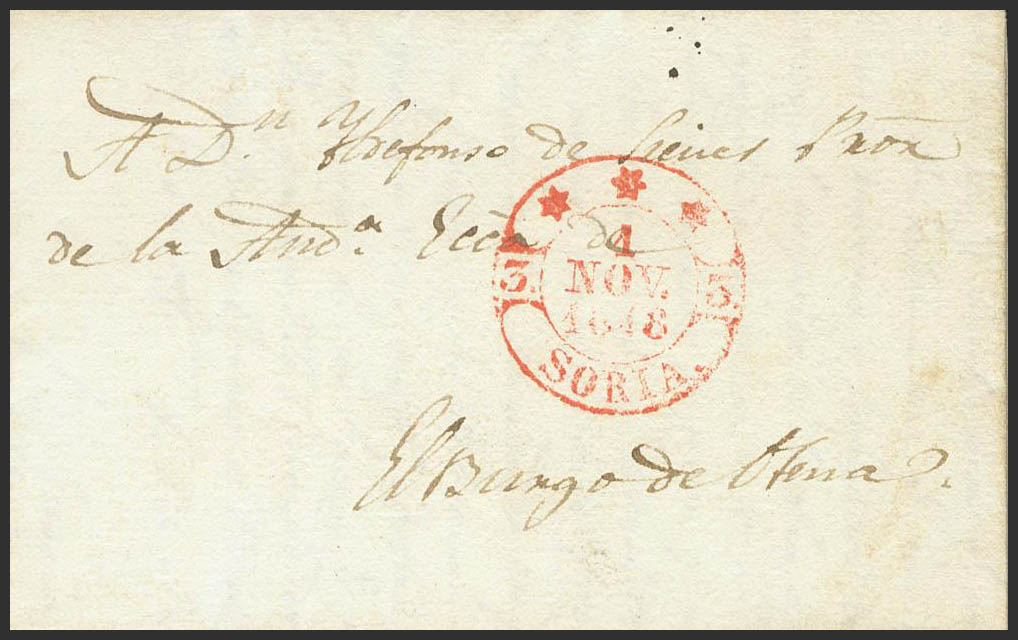 A Dⁿ Yldefonso de Sienes Pror
de la Audª Eccª de
3. 1 3.
NOV.
1848
SORIA.
El Burgo de Osma